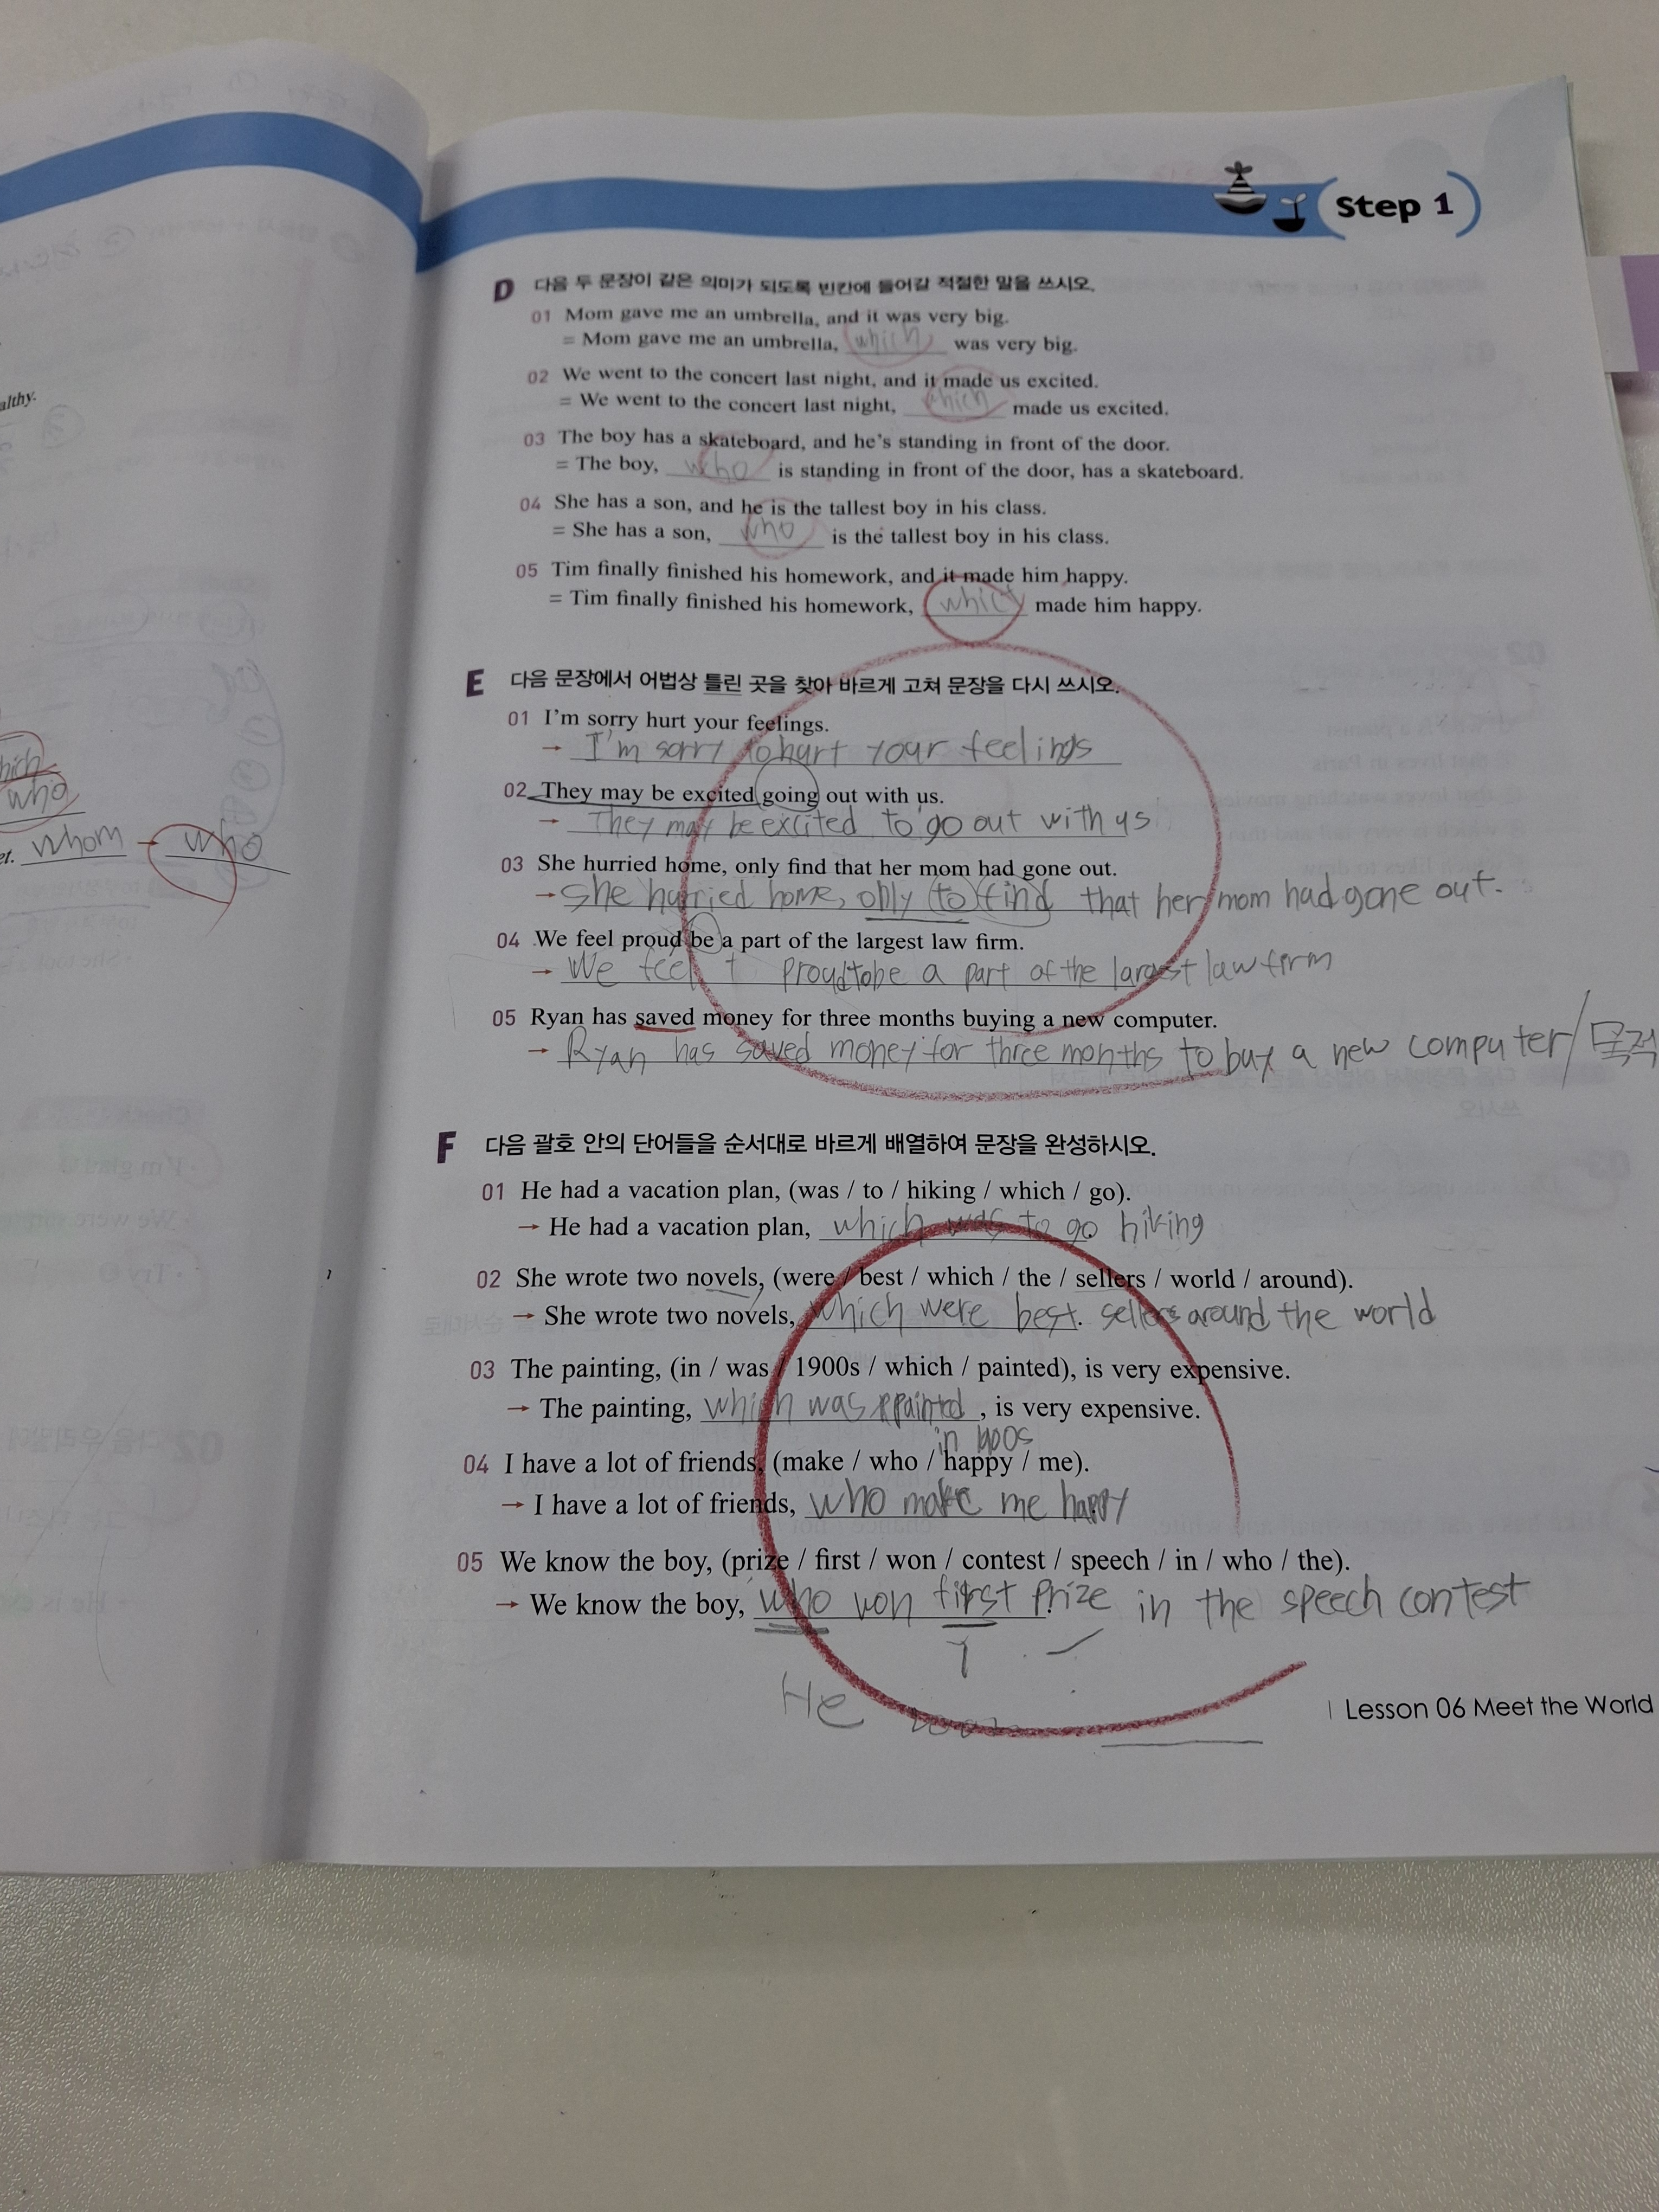 Step 1
D 다음 두 문장이 같은 의미가 되도록 빈칸에 들어갈 적절한 말을 쓰시오.
01 Mom gave me an umbrella, and it was very big.
= Mom gave me an umbrella, which was very big.
02 We went to the concert last night, and it made us excited.
= We went to the concert last night, which made us excited.
03 The boy has a skateboard, and he's standing in front of the door.
= The boy, who is standing in front of the door, has a skateboard.
04 She has a son, and he is the tallest boy in his class.
= She has a son, who is the tallest boy in his class.
05 Tim finally finished his homework, and it made him happy.
= Tim finally finished his homework, which made him happy.
althy.
hich
who
et. whom → who
E 다음 문장에서 어법상 틀린 곳을 찾아 바르게 고쳐 문장을 다시 쓰시오.
01 I'm sorry hurt your feelings.
→ I'm sorry to hurt your feelings
02 They may be excited going out with us.
→ They may be excited to go out with us
03 She hurried home, only find that her mom had gone out.
→ She hurried home, only to find that her mom had gone out.
04 We feel proud be a part of the largest law firm.
→ We feel proud to be a part of the largest law firm
05 Ryan has saved money for three months buying a new computer.
→ Ryan has saved money for three months to buy a new computer / 목적
F 다음 괄호 안의 단어들을 순서대로 바르게 배열하여 문장을 완성하시오.
01 He had a vacation plan, (was / to / hiking / which / go).
→ He had a vacation plan, which was to go hiking
02 She wrote two novels, (were / best / which / the / sellers / world / around).
→ She wrote two novels, which were best sellers around the world
03 The painting, (in / was / 1900s / which / painted), is very expensive.
→ The painting, which was painted, is very expensive.
in 1900s
04 I have a lot of friends, (make / who / happy / me).
→ I have a lot of friends, who make me happy
05 We know the boy, (prize / first / won / contest / speech / in / who / the).
→ We know the boy, who won first prize in the speech contest
He
Lesson 06 Meet the World